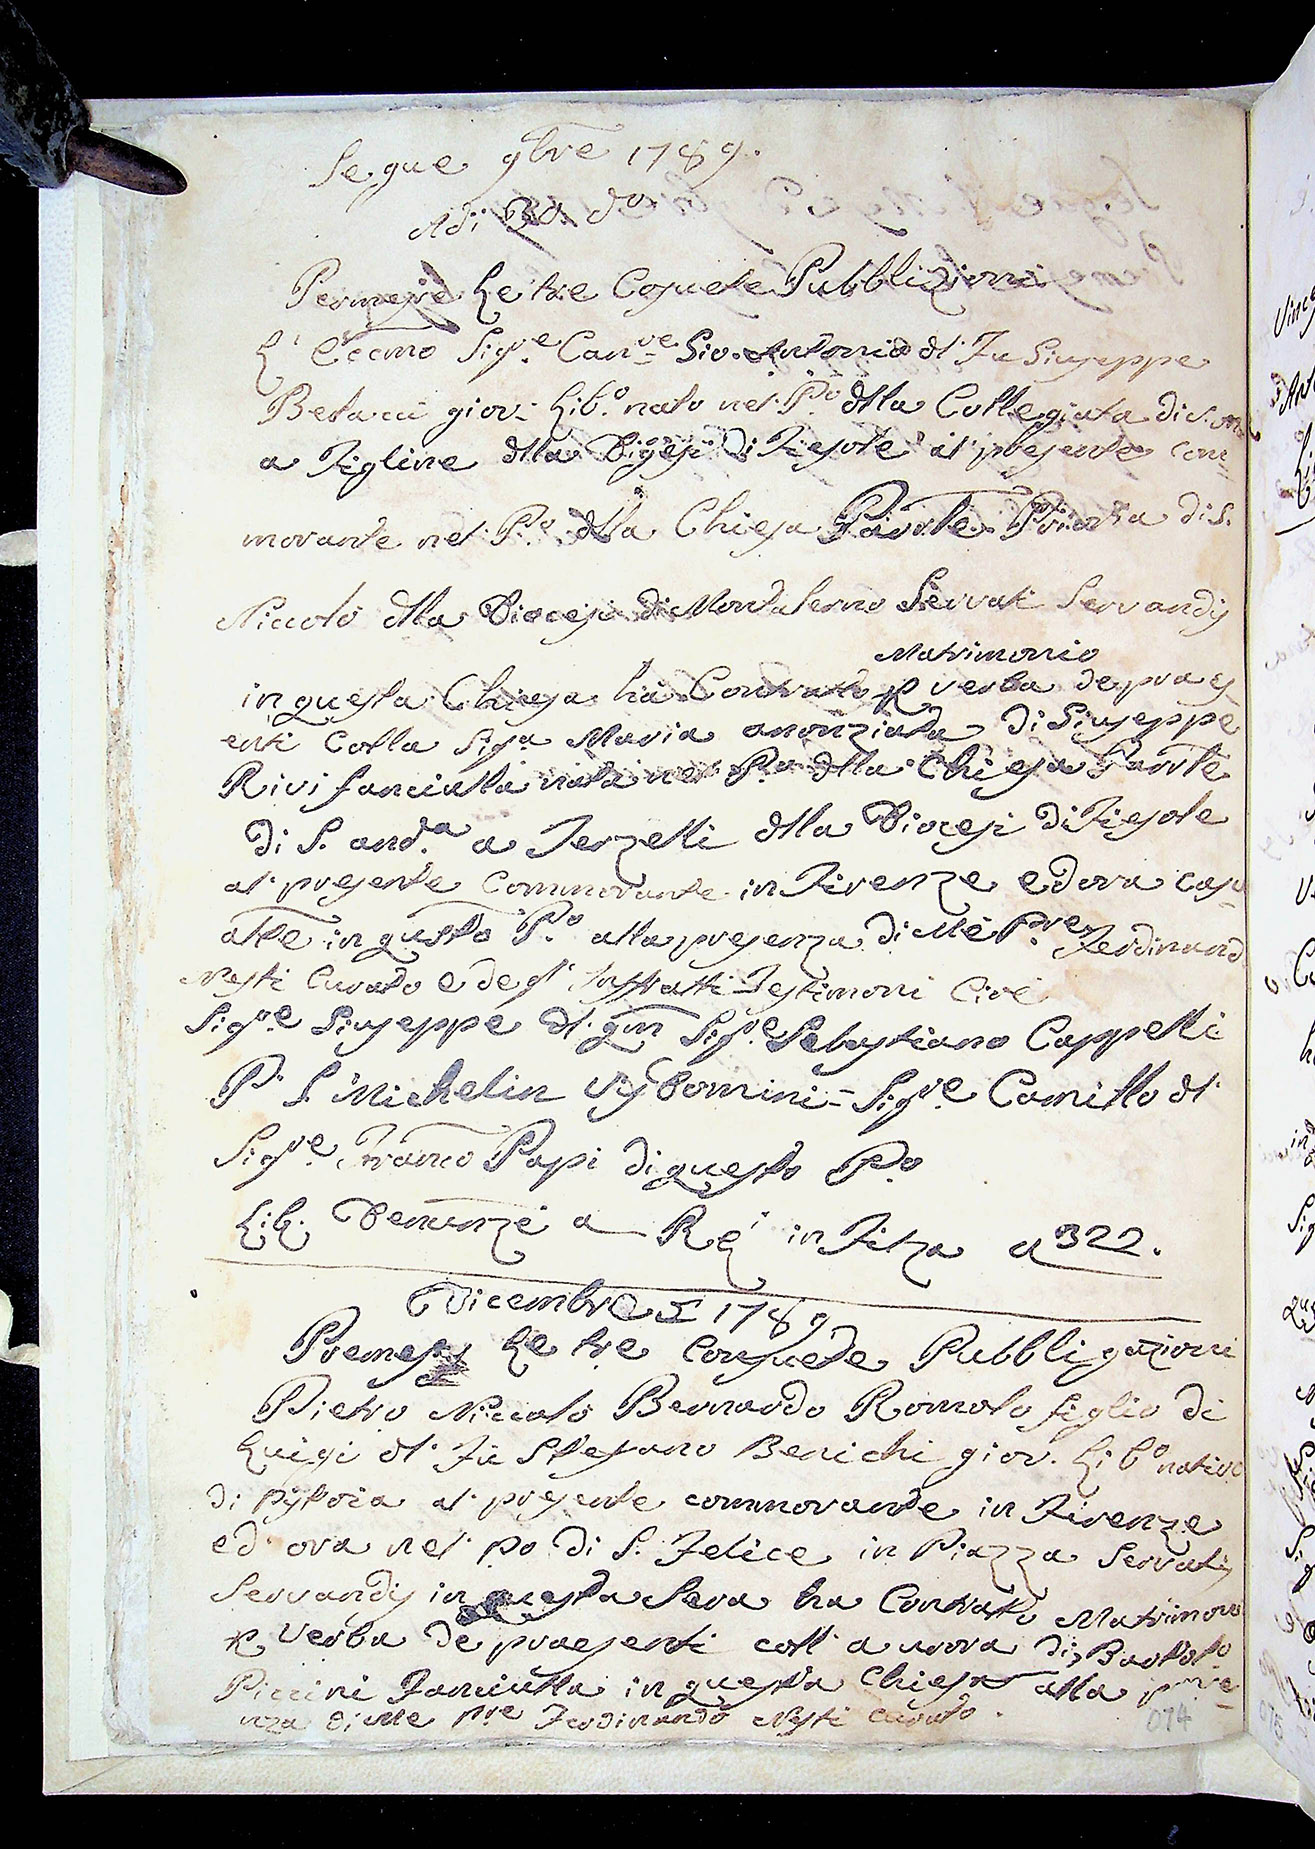 Segue 9bre 1789.
Adi 30. do
Permesse le tre Consuete Pubblizioni
L' Eccmo Sigre Canve Gio. Antonio dl Fu Giuseppe
Betacci giov: Lib.o nato nel P.o dlla Collegiata di S. Ma
a Figline dlla Diogesi di Fiesole al presente com=
morante nel P.o dlla Chiesa Parrle Prioria di S.
Niccolò dlla Diocesi di Servati Servandis
Matrimonio
in questa Chiesa ha Contratto p verba de praes
enti Colla Sigra Maria anonziata di Giuseppe
Rivi fanciulla nata nel P.o dlla Chiesa Parrle
di S. And.a a Terzelli dlla Diocesi di Fiesole
al presente Commorante in Firenze ed ora casu
alte in questo P.o alla presenza di Me Pre Ferdinand
Nesti Curato e de gl' Infratti Testimoni Cioè
Sigre Giuseppe dl qm Sigre Sebastiano Cappelli
P. S. Michelin Visdomini = Sigre Camillo dl
Sigre Franco Papi di questo P.o
Lib. Denunze a Rei in Filza a 322.
Dicembre 5 1789
Premesse Le tre Consuete Pubbligazioni
Pietro Niccolò Bernardo Romolo figlio di
Luigi dl Fu Steffano Benichi giov. Lib.o nativo
di Pistoia al presente commorante in Firenze
ed ora nel po di S. Felice in Piazza Servatis
Servandis in questa Sera ha Contratto Matrimonio
p Verba de praesenti coll' di Bartolo
Piccini Fanciulla in questa Chiesa alla prese=
nza di Me pre Ferdinando Nesti curato.
074